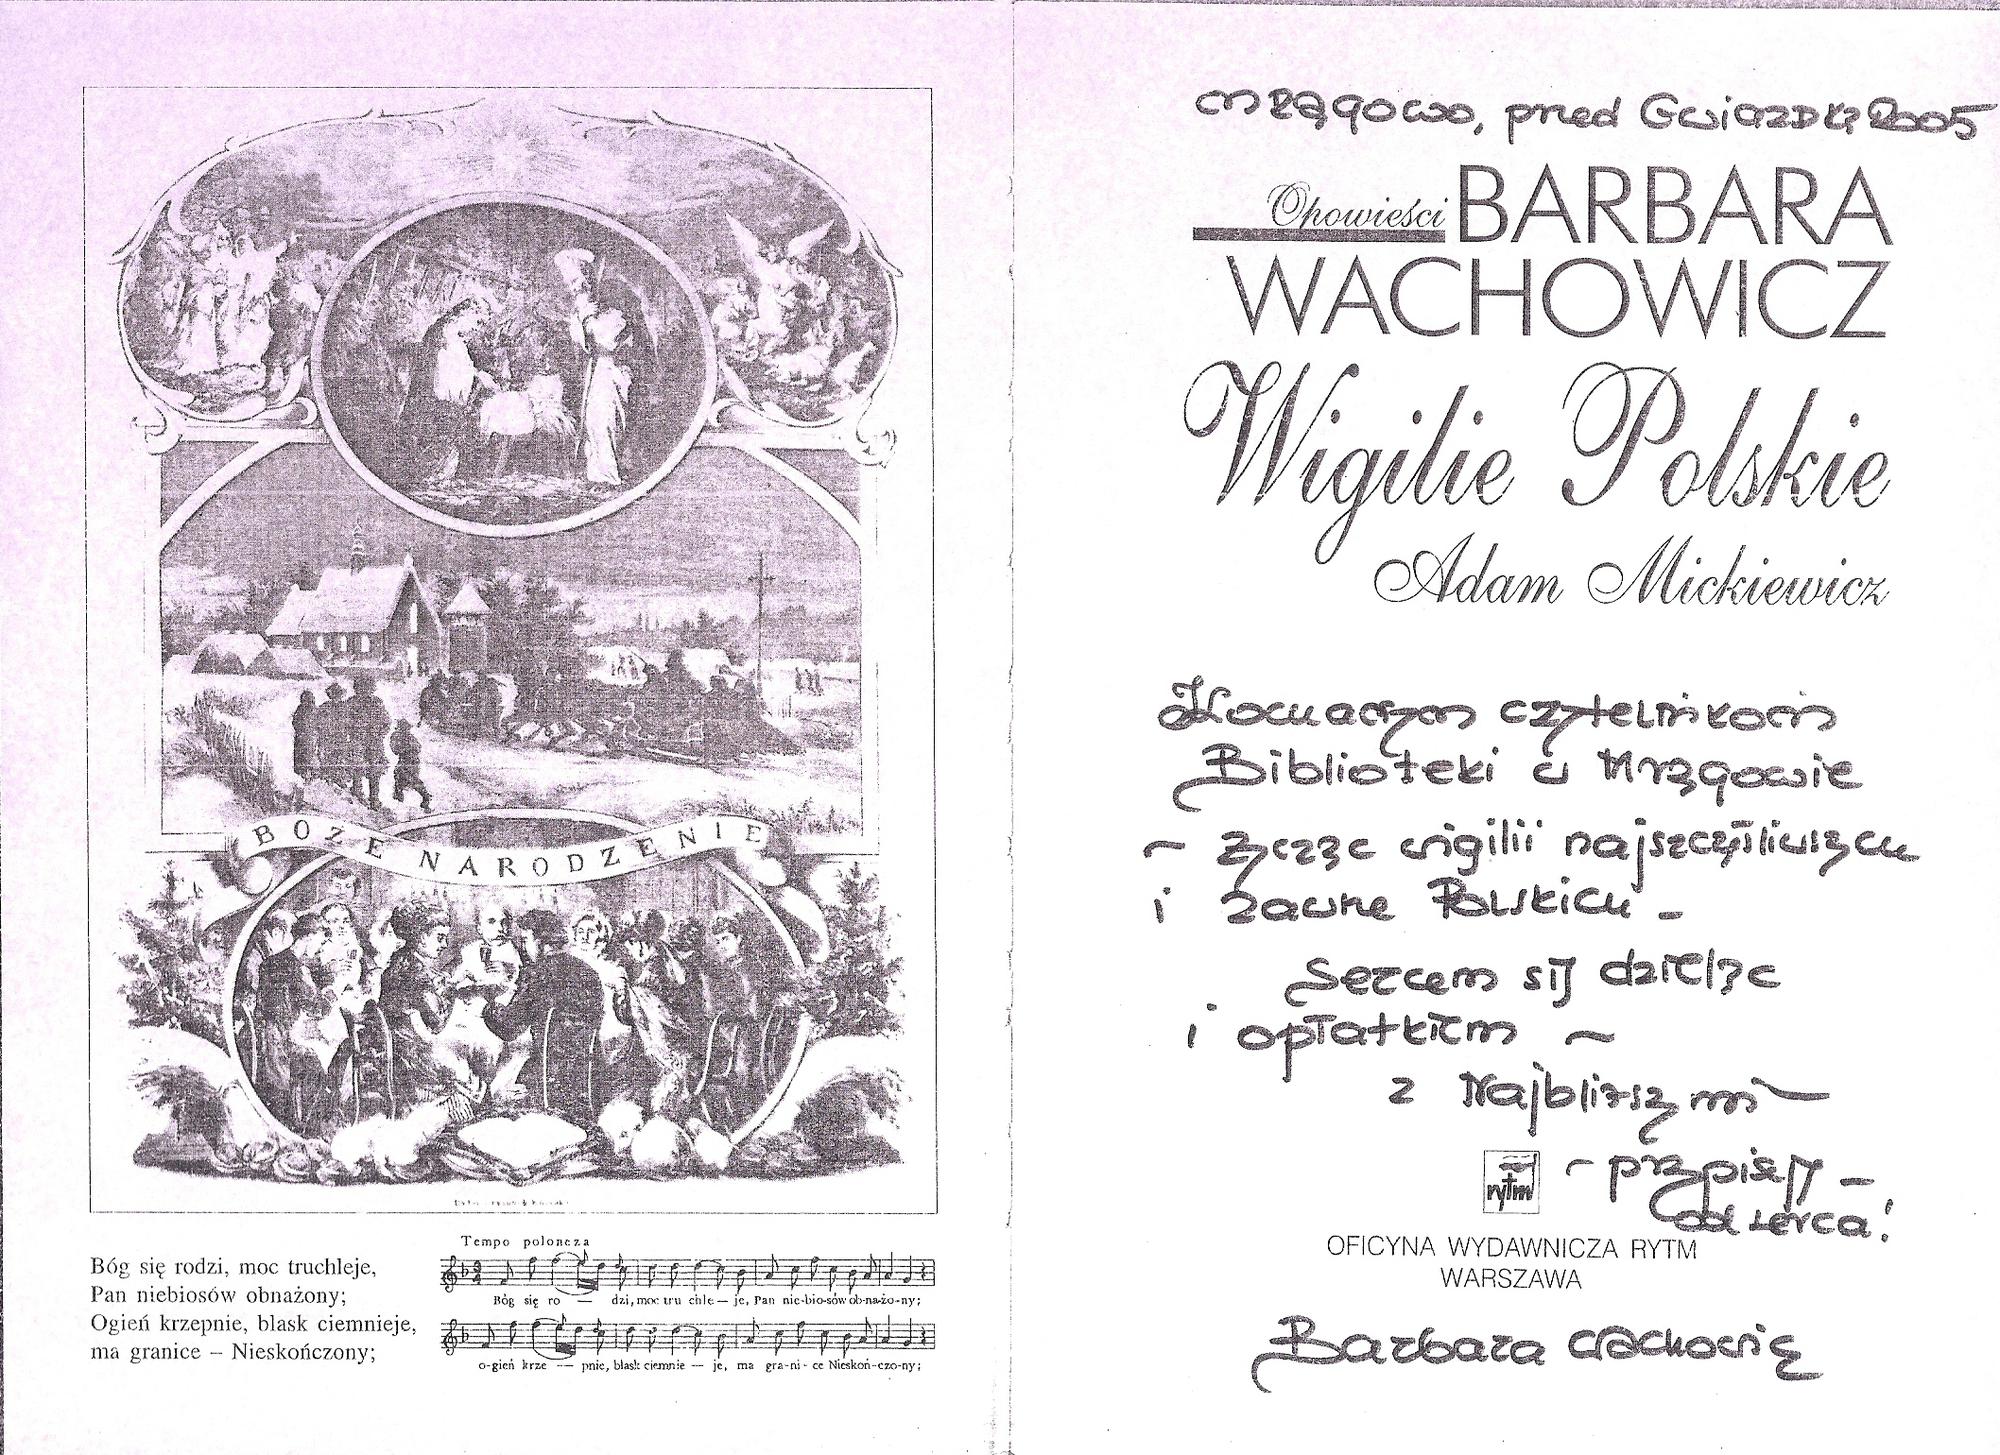 BOŻE NARODZENIE
Bóg się rodzi, moc truchleje,
Pan niebiosów obnażony;
Ogień krzepnie, blask ciemnieje,
ma granice – Nieskończony;
Tempo poloneza
Bóg się ro — dzi, moc tru chle — je, Pan nie-bio-sów ob-na-żo-ny;
o-gień krze — pnie, blask ciemnie — je, ma gra-ni-ce Nieskoń-czo-ny;
Mrągowo, przed Gwiazdką 2005
Opowieści BARBARA
WACHOWICZ
Wigilie Polskie
Adam Mickiewicz
Kochanym czytelnikom
Biblioteki w Mrągowie
~ życząc wigilii najszczęśliwszych
i zawsze Polskich –
Sercem się dzieląc
i opłatkiem ~
z Najbliższymi –
– przypisuję –
od serca!
rytm
OFICYNA WYDAWNICZA RYTM
WARSZAWA
Barbara Wachowicz